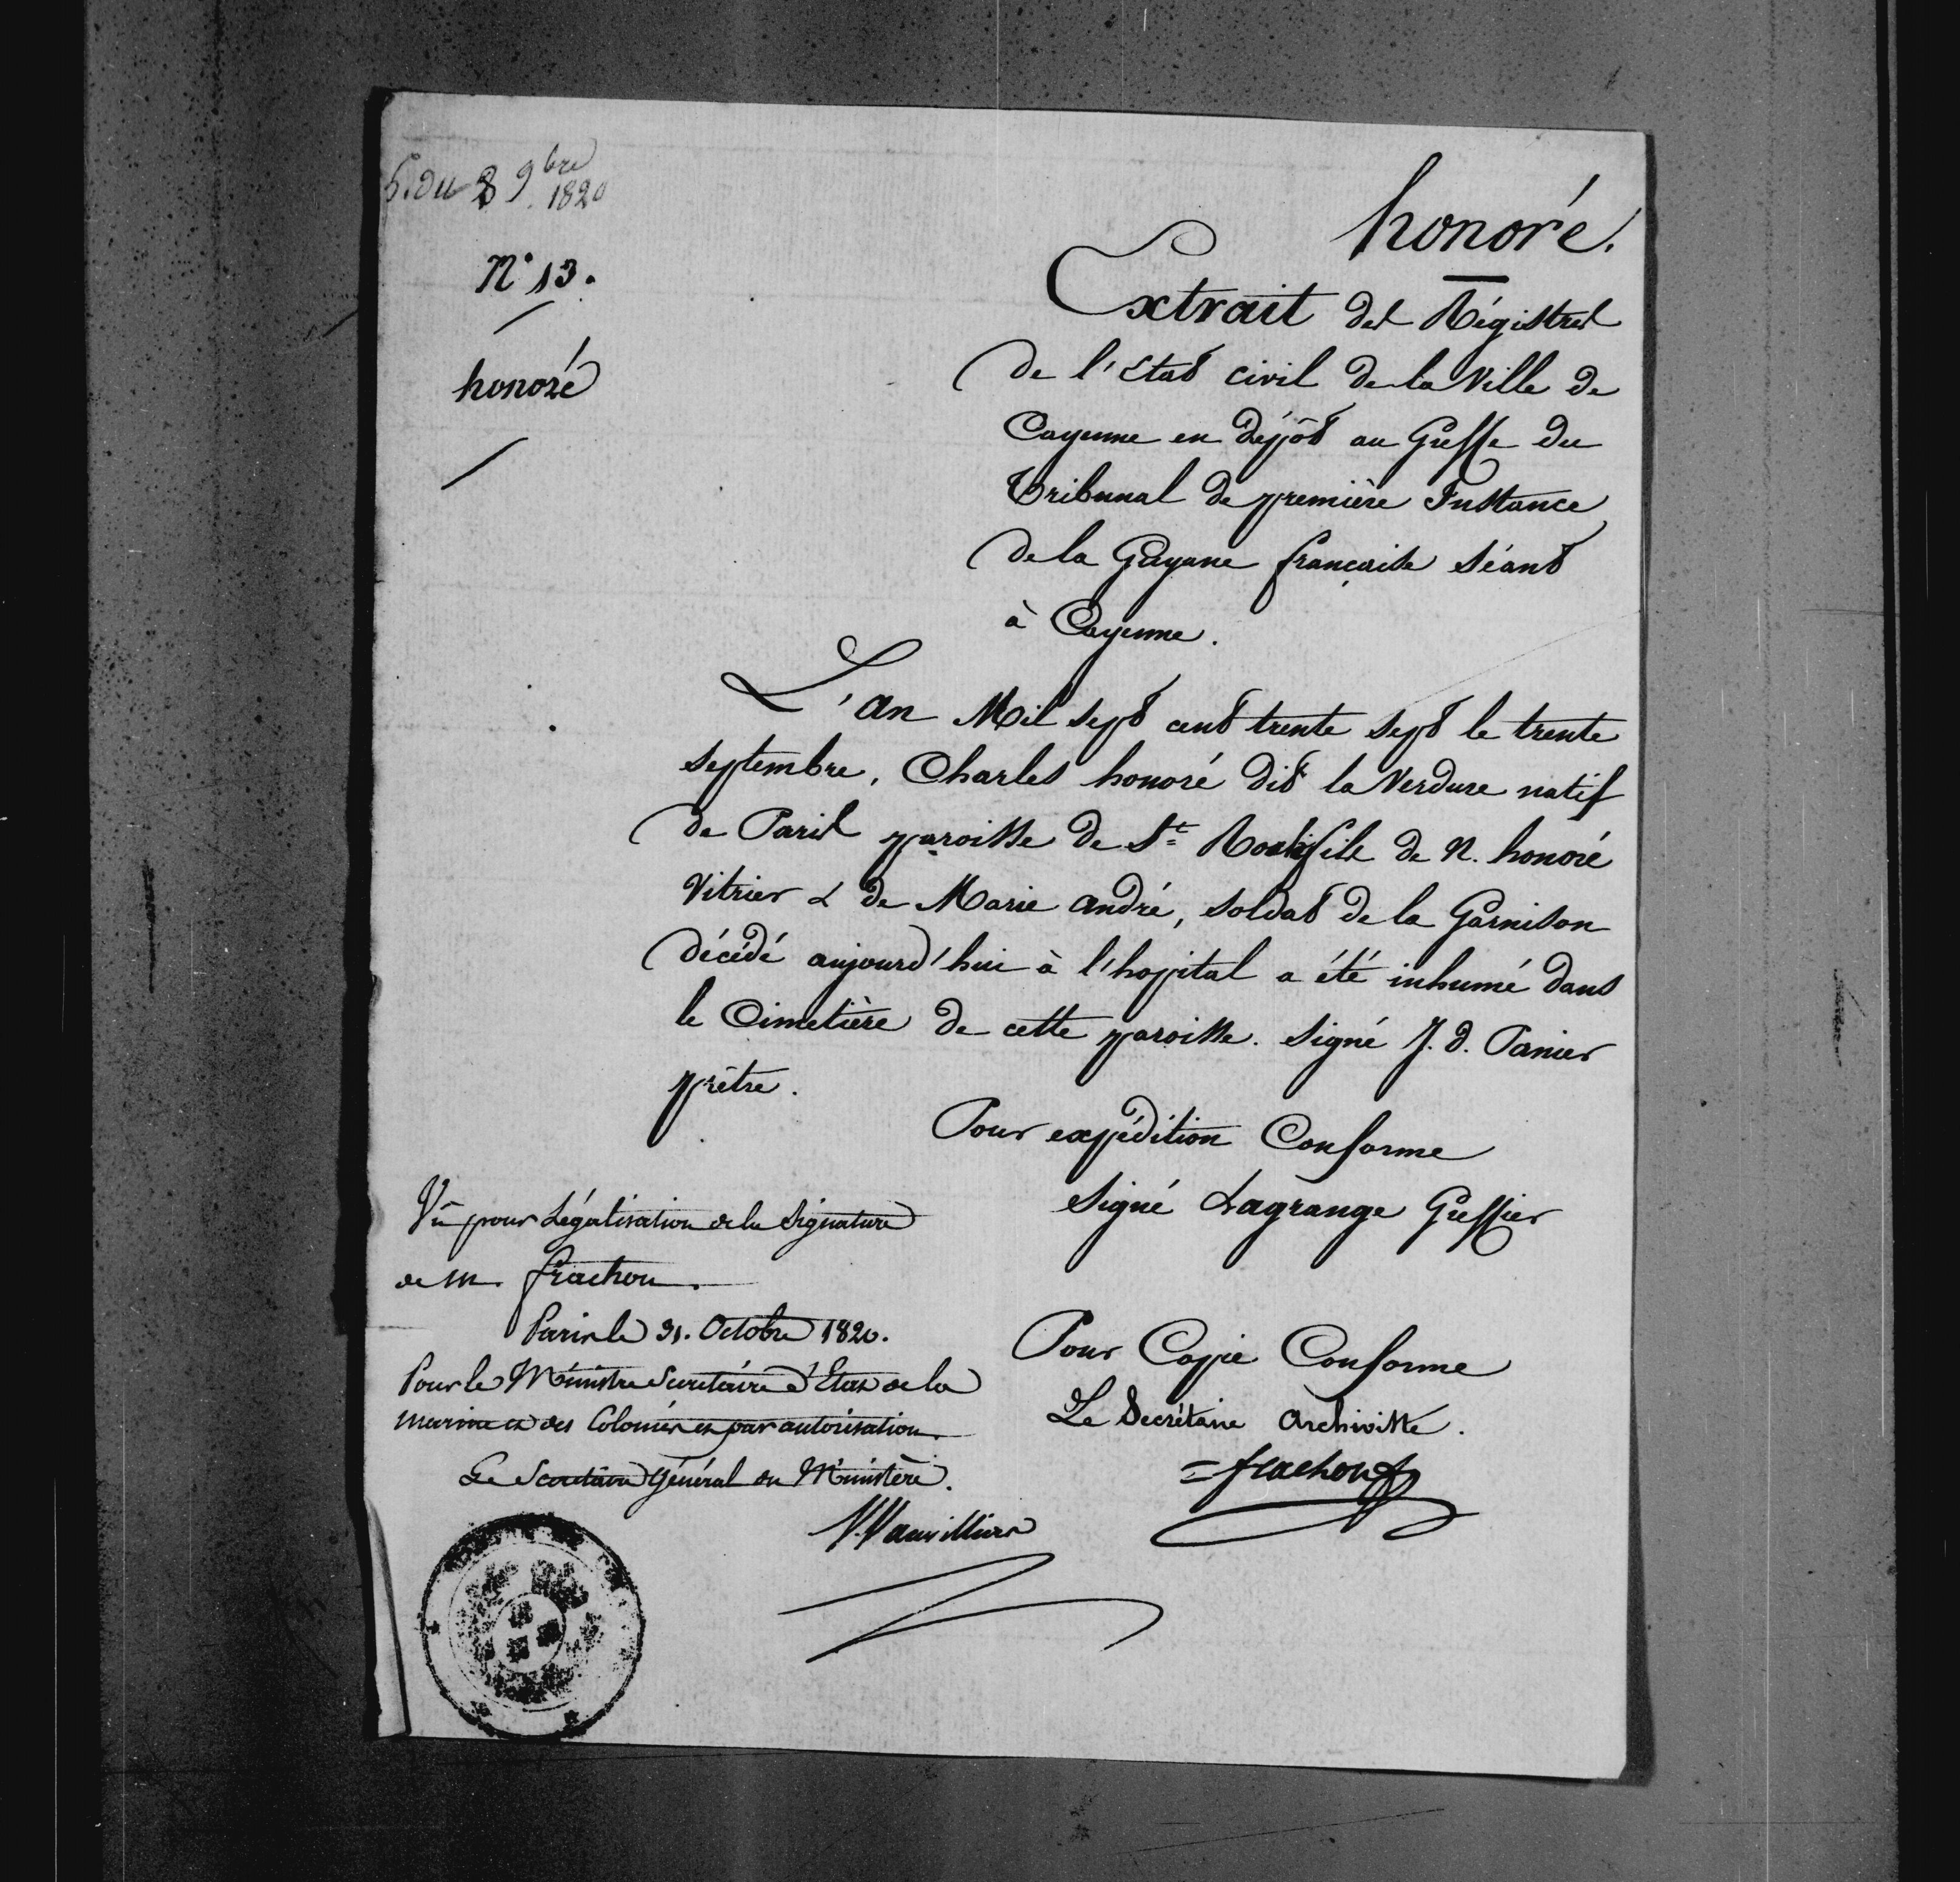 du 8 9bre
1820
N° 13.
honoré
honoré.
Extrait des Régistres
de l'état civil de la Ville de
Cayenne en dépôt au Greffe du
Tribunal de première Instance
de la Guyane française séant
à Cayenne.
L'an Mil sept cent trente sept le trente
septembre, Charles honoré dit la Verdure natif
de Paris paroisse de St Roch fils de N. honoré
Vitrier & de Marie andré, soldat de la Garnison
décédé aujourd'hui à l'hopital a été inhumé dans
le Cimetière de cette paroisse. signé J. d. Panier
prêtre.
Pour expédition Conforme
signé Lagrange Greffier
Vu pour Légalisation de la Signature
de M. frachon.
Paris le 31. Octobre 1820.
Pour le Ministre Secrétaire d'Etat de la
marine et des Colonies et par autorisation.
Le Secrétaire Général du Ministère.
Pour Copie Conforme
Le Secrétaire archiviste.
frachon
Vauvilliers